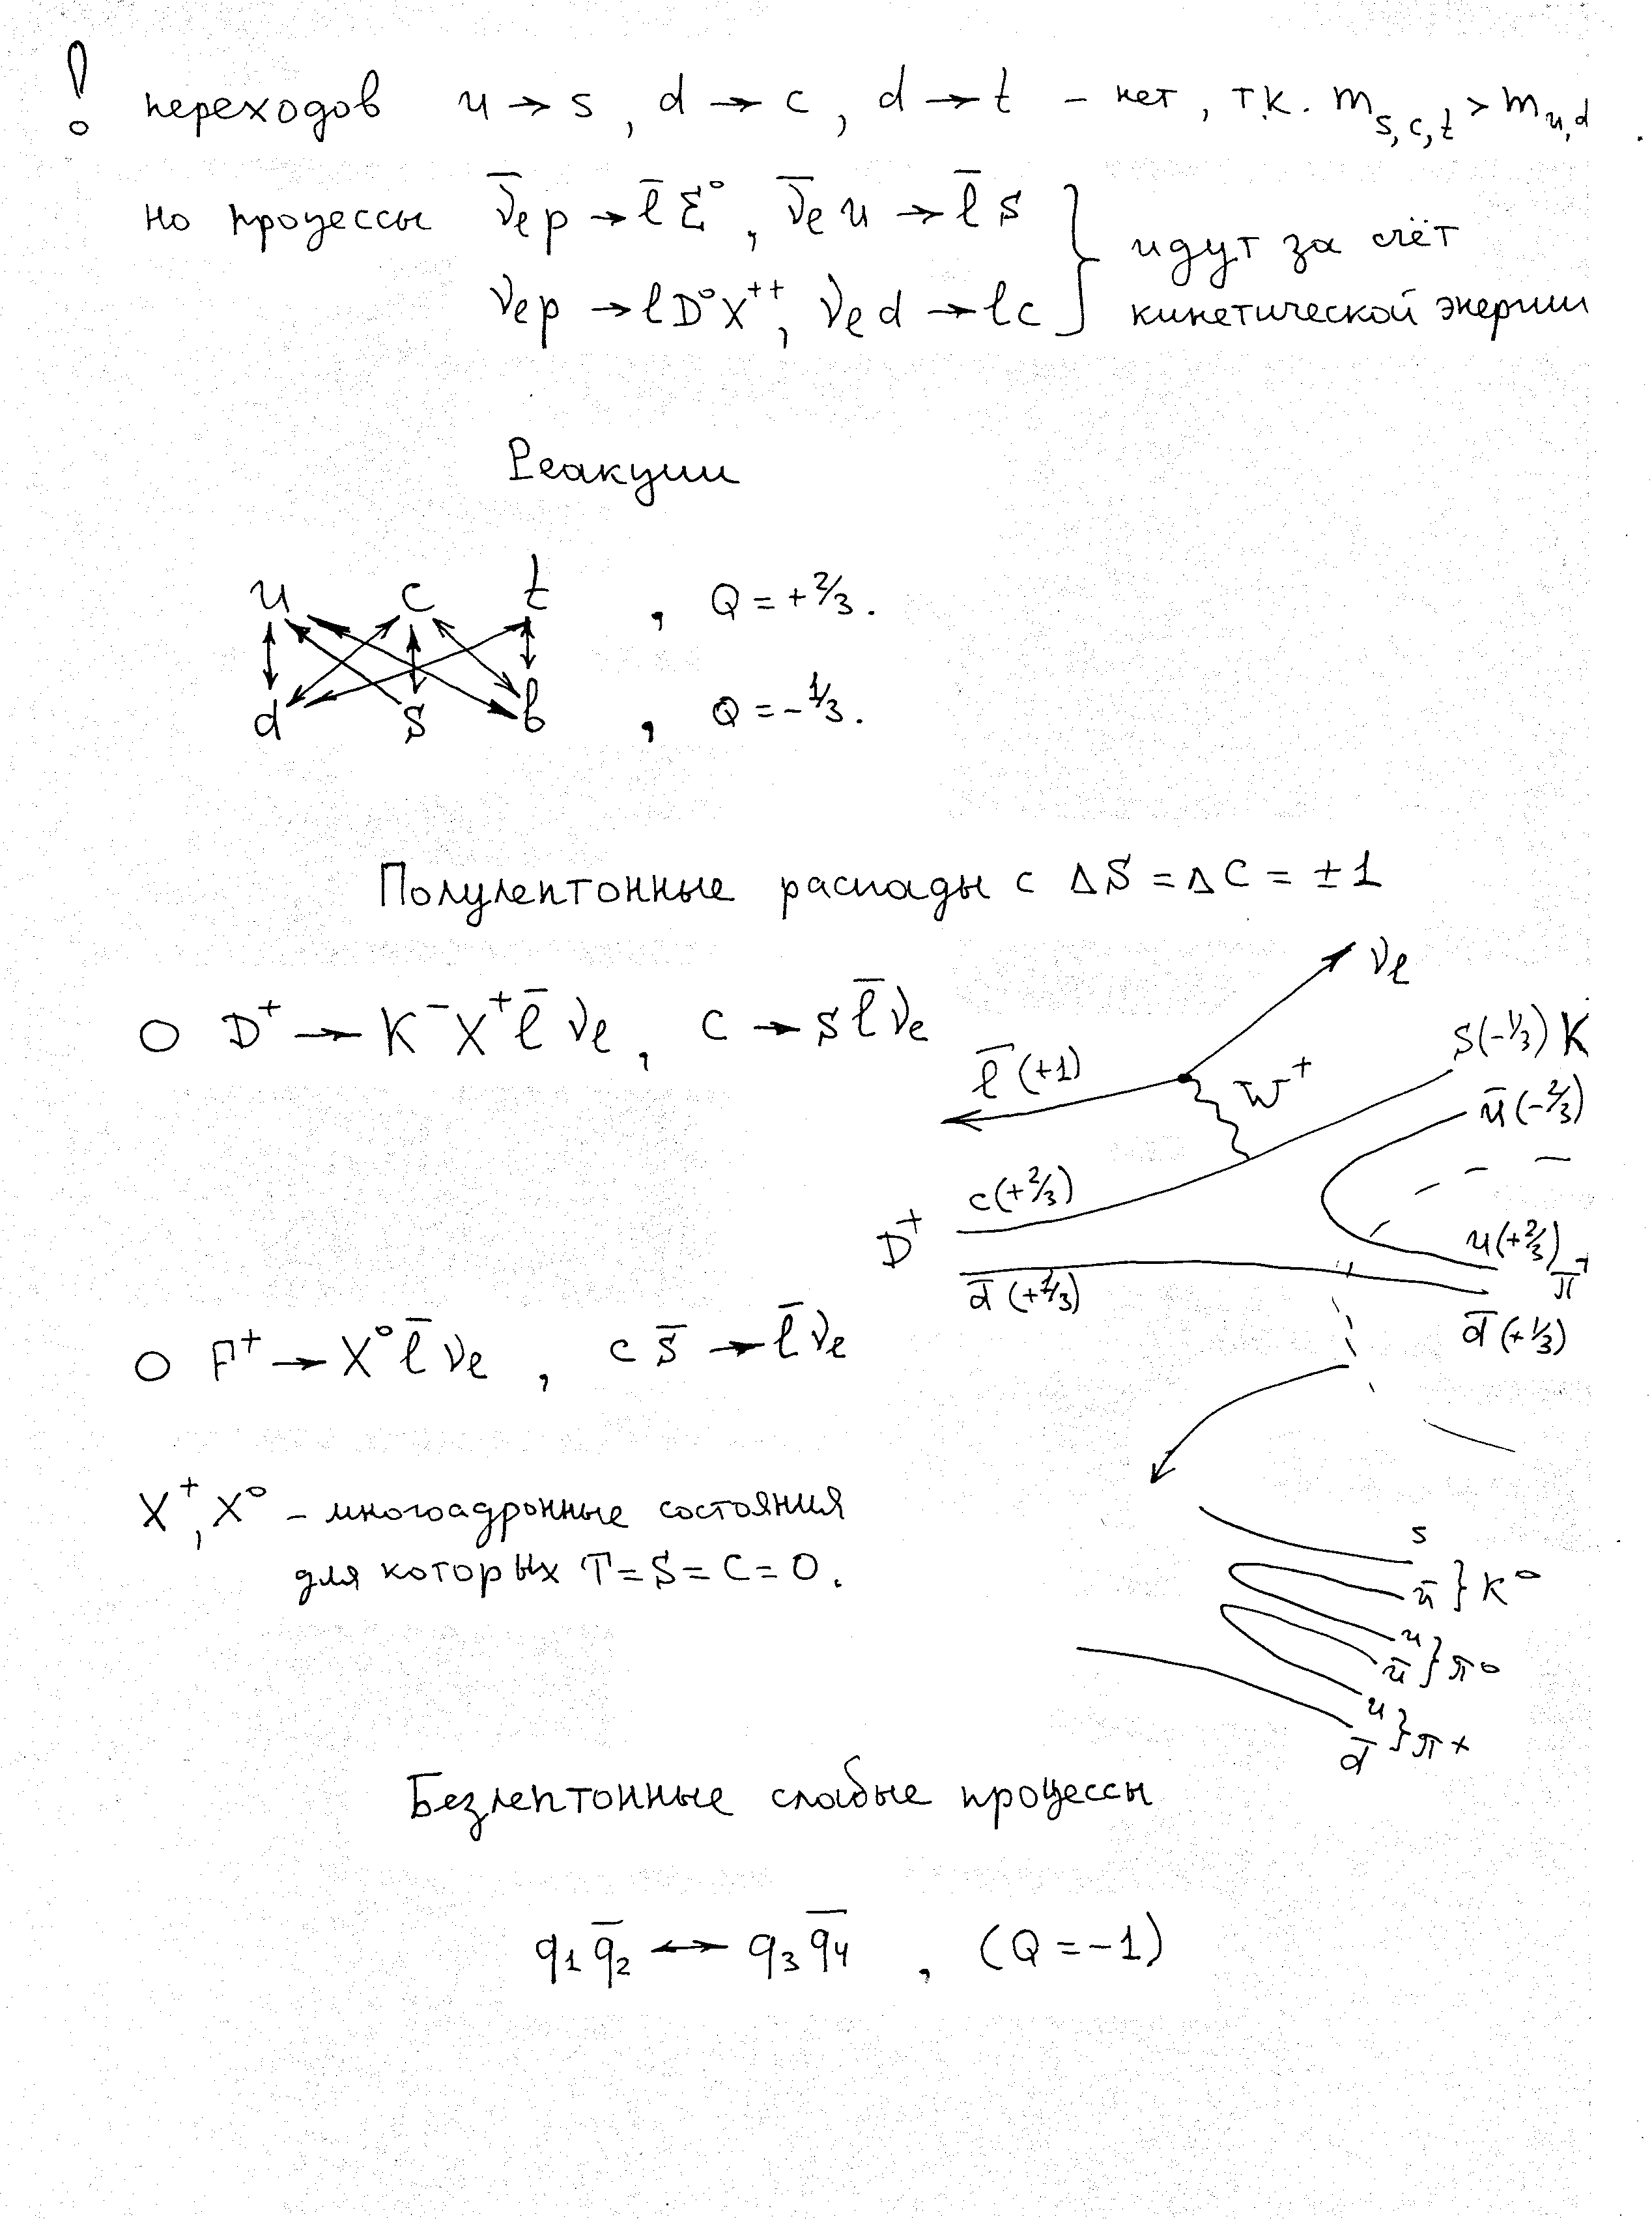 ! переходов u → s, d → c, d → t – нет, т.к. m_{s,c,t} > m_{u,d}.
но процессы ν̄_ℓ p → ℓ̄ Σ⁰, ν̄_ℓ u → ℓ̄ s
ν_ℓ p → ℓ D⁰ X⁺⁺, ν_ℓ d → ℓ c } идут за счёт
кинетической энергии
Реакции
u c t , Q = + 2/3.
d s b , Q = – 1/3.
Полулептонные распады с ΔS = ΔC = ±1
○ D⁺ → K⁻ X⁺ ℓ̄ ν_ℓ, c → s ℓ̄ ν_ℓ
ν_ℓ
ℓ̄ (+1)
W⁺
s(-1/3) K
ū(-2/3)
c(+2/3)
D⁺
d̄(+1/3)
u(+2/3)
π⁺
d̄(+1/3)
○ F⁺ → X⁰ ℓ̄ ν_ℓ, c s̄ → ℓ̄ ν_ℓ
X⁺, X⁰ – многоадронные состояния
для которых T = S = C = 0.
s
ū } K⁰
u
ū } π⁰
u
d̄ } π+
Безлептонные слабые процессы
q₁ q̄₂ ↔ q₃ q̄₄ , (Q = –1)